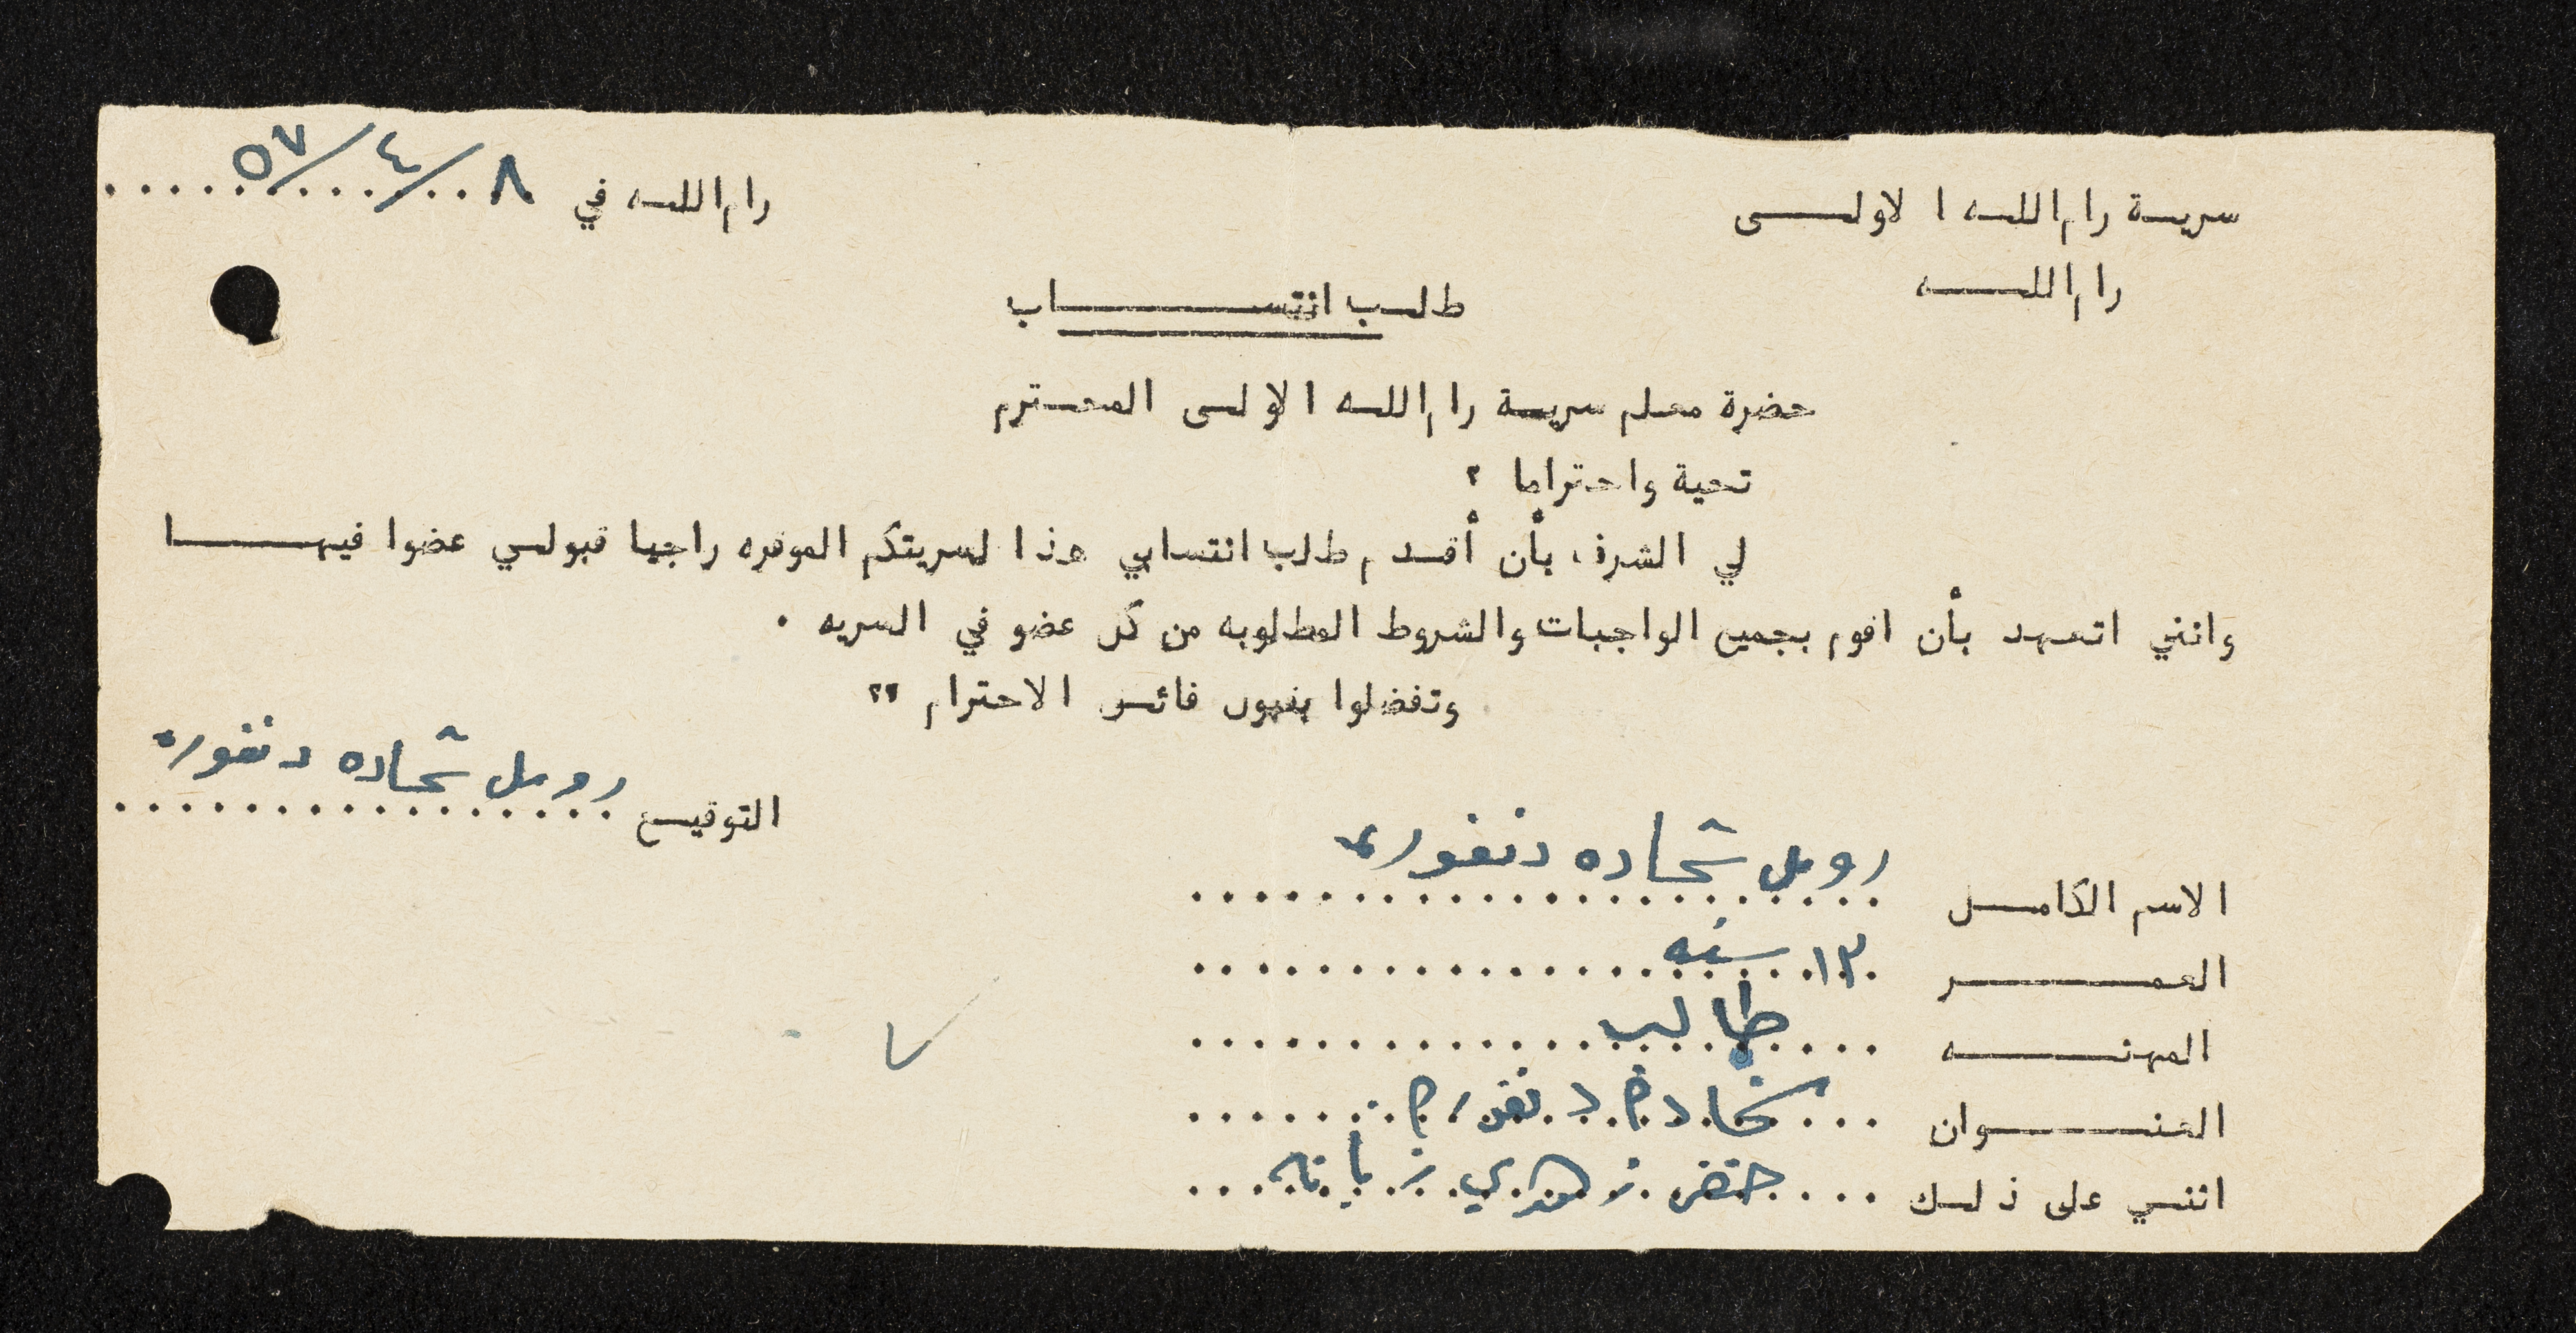 سرية رام الله الاولى
رام الله في ٨/٤/٥٧
رام الله
طلب انتساب
حضرة معلم سرية رام الله الاولى المحترم
تحية واحتراما ؟
لي الشرف، بأن أقدم طلب انتسابي هذا لسريتكم الموقره راجيا قبولي عضوا فيها
وانني اتعهد بأن اقوم بجميع الواجبات والشروط المطلوبه من كل عضو في السريه .
وتفضلوا بقبول فائق الاحترام ؟؟
التوقيع شحاده دنغوره
الاسم الكامل شحاده دنغوره
العمر ١٣ سنه
المهنه طالب
العنوان شحادة دنغورة
انني على ذلك